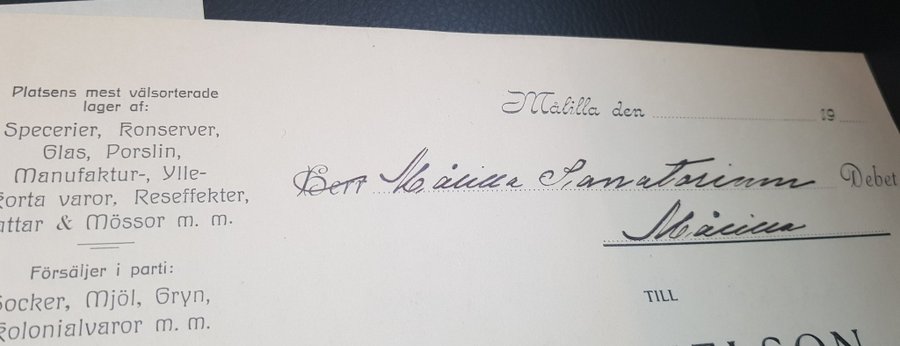 Platsens mest välsorterade
lager af:
Specerier, Konserver,
Glas, Porslin,
Manufaktur-, Ylle-
Korta varor, Reseffekter,
attar & Mössor m. m.
Försäljer i parti:
Socker, Mjöl, Gryn,
Kolonialvaror m. m.
Målilla den 19
Herr Målilla Sanatorium Debet
Målilla
TILL
ELSON